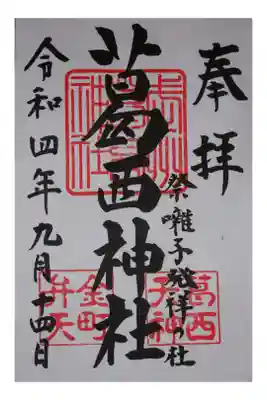 奉拝
葛西神社
祭囃子発祥の社
令和四年九月十四日
葛西
天神
金町
弁天